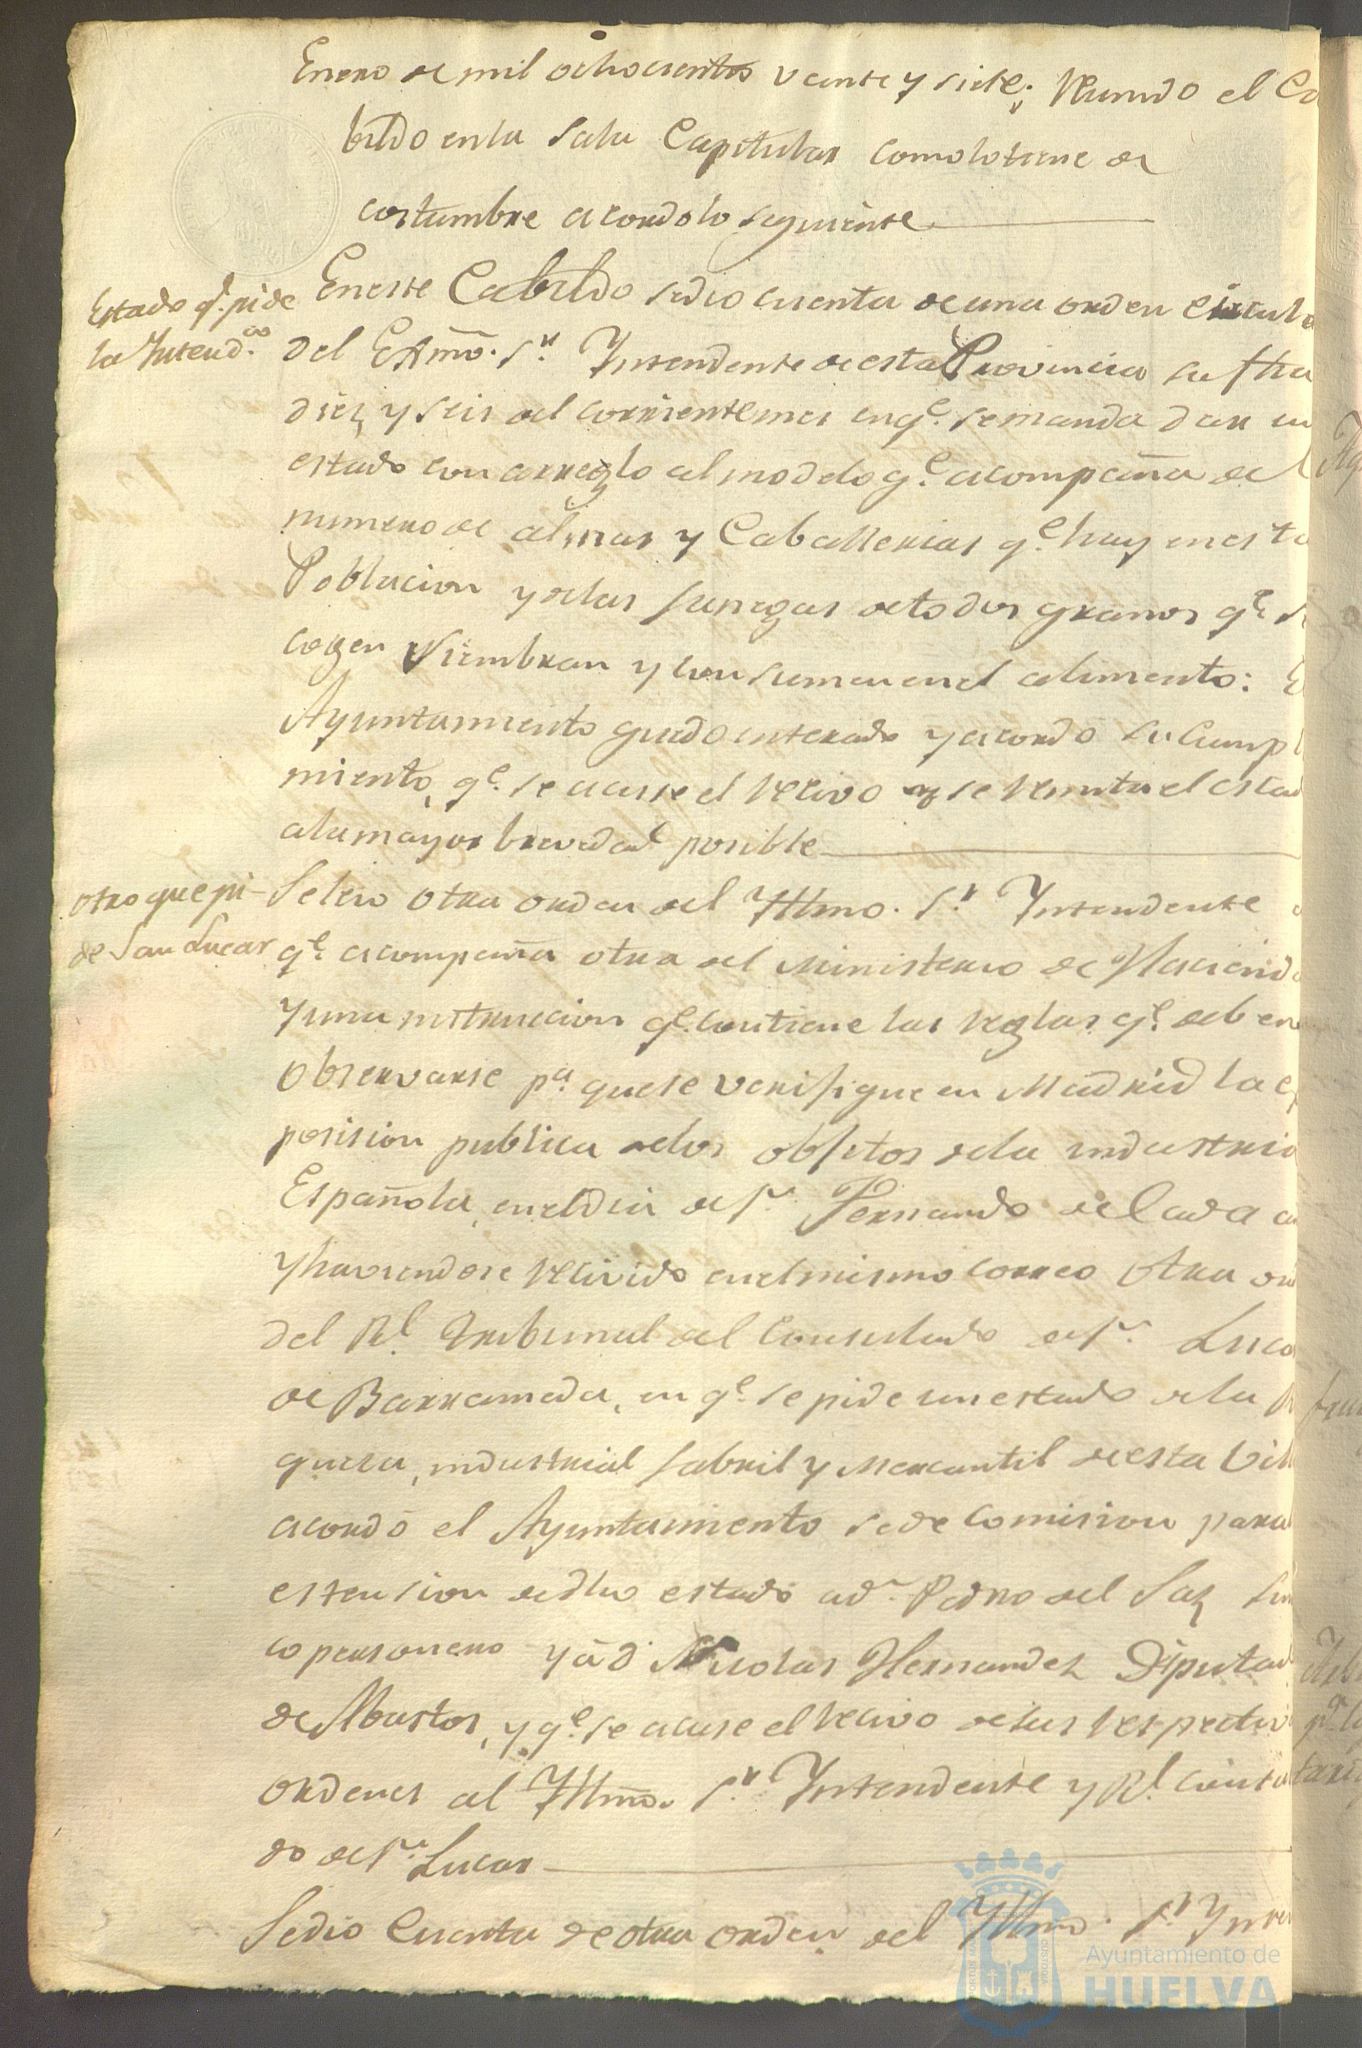 Enero de mil ochocientos veinte y siete; Reunido el Ca
bildo en la Sala Capitular como lo tiene de
costumbre acordo lo siguiente
Estado q.e pide
la Intend.ª
En este Cabildo se dio cuenta de una orden circula
del Exmõ. S.r Yntendente de esta Provincia su fha
diez y seis del corriente mes en q.e se manda dar un
estado con arreglo al modelo q.e acompaña del
numero de almas y Caballerias q.e hay en esta
Poblacion y delas fanegas de todos granos q.e se
cogen Siembran y consumen en el alimento: E
Ayuntamiento quedo enterado y acordó su Cumpl
miento, q.e se acuse el recivo y se remita el estad
ala mayor brevedad posible
otro que pi-
de San Lucar
Se leio otra orden del Yltmo. S.r Yntendente
q.e acompaña otra del Ministerio de Hacienda
y una instruccion q.e contiene las reglas q.e deben
observarse p.ª que se verifique en Madrid la es
posision publica delos objetos dela industria
Española, en el dia de S.n Fernando de Cada a
y haviendose recivido en el mismo correo otra or
del R.l Tribunal del Consulado de S.n Luca
de Barrameda, en q.e se pide un estado dela Ri
quesa, industrial fabril y Mercantil de esta Vill
acordó el Ayuntamiento se de Comision para
estension de dho estado a d.n Pedro del Saz Sin
co personero y á d.n Nicolas Hernandez Diputad
de Abastos, y q.e se acuse el recivo de sus respectiv
ordenes al Yltmõ. S.r Yntendente y R.l Consula
do de S.n Lucar
Se dio Cuenta de otra orden del Yltmo. S.r Ynten
Ayuntamiento de
HUELVA